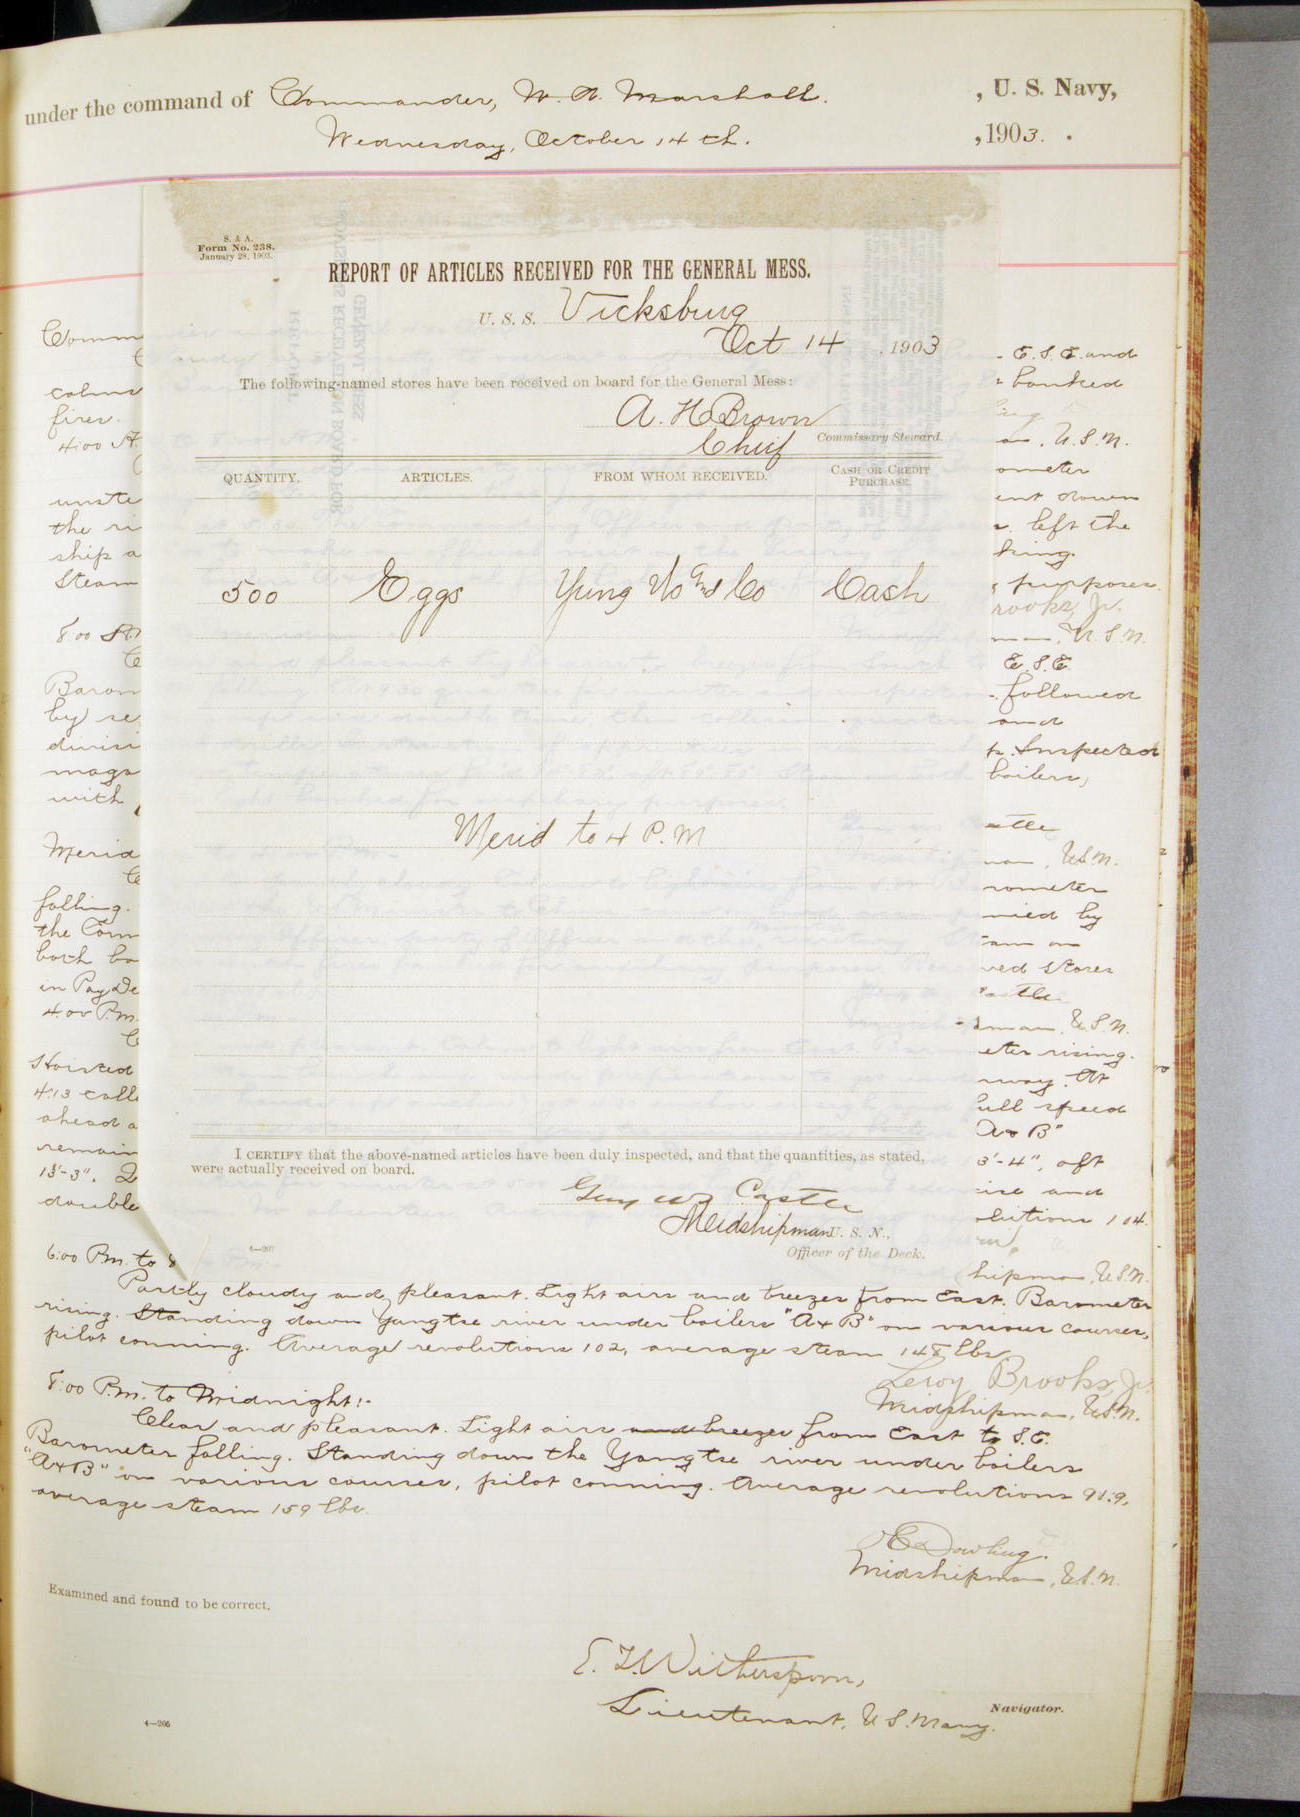 under the command of Commander, W. A. Marshall. , U. S. Navy,
Wednesday, October 14th. , 1903.
S. & A.
Form No. 238.
January 28, 1903.
REPORT OF ARTICLES RECEIVED FOR THE GENERAL MESS.
U. S. S. Vicksburg
Oct 14, 1903
The following-named stores have been received on board for the General Mess:
A. H. Brown
Chief Commissary Steward.
QUANTITY. ARTICLES. FROM WHOM RECEIVED. CASH OR CREDIT PURCHASE.
500 Eggs Yung Co Cash
Merid to 4 P.M
I CERTIFY that the above-named articles have been duly inspected, and that the quantities, as stated,
were actually received on board.
Guy W. Castle
Midshipman U. S. N.,
Officer of the Deck.
4—207
Comm
calms
fires.
4:00 A.
unste
the ri
ship a
Steam
8:00
Barom
by se
divisi
maga
with
Merid
falling.
the Com
both bo
in Pay De
4:00 P.m.
Hoisted
4:13 calle
ahead a
remain
13'-3".
double
E. S. E. and
banked
U.S.N.
ometer
ent down
left the
king.
purposes
rooks, Jr.
man, U.S.N.
E. S. E.
followed
and
Inspected
boilers,
astle
man, U.S.N.
rometer
nied by
eam on
ved stores
astle
man, U.S.N.
eter rising.
way. At
ull speed
A & B"
3'-4", aft
ise and
olutions 104.
hipman, U.S.N.
6:00 P.m. to 8
Partly cloudy and pleasant. Light airs and breezes from East. Barometer
rising. Standing down Yangtse river under boilers "A & B" on various courses,
pilot conning. Average revolutions 102, average steam 148 lbs.
Leroy Brooks, Jr.
Midshipman, U.S.N.
8:00 P.m. to Midnight:-
Clear and pleasant. Light airs and breezes from East to S.E.
Barometer falling. Standing down the Yangtse river under boilers
"A & B" on various courses, pilot conning. Average revolutions 91.9,
average steam 159 lbs.
Dowling.
Midshipman, U.S.N.
Examined and found to be correct.
E. T. Witherspoon,
Lieutenant, U.S. Navy. Navigator.
4—206